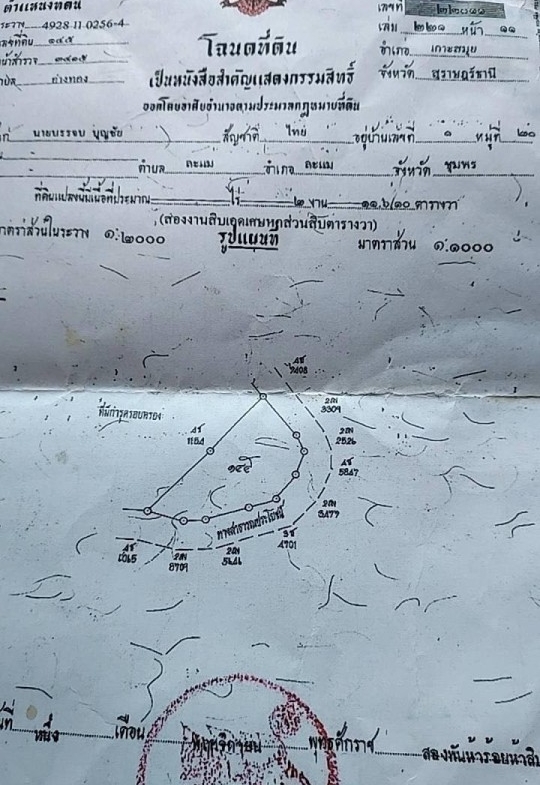 ตำแหน่งที่ดิน
ระวาง 4928 11 0256-4
เลขที่ดิน ๑๔๕
อ่างทอง
เลขที่
เล่ม ๒๒๑ หน้า ๑๑
อำเภอ เกาะสมุย
จังหวัด สุราษฎร์ธานี
โฉนดที่ดิน
เป็นหนังสือสำคัญแสดงกรรมสิทธิ์
ออกโดยอาศัยอำนาจตามประมวลกฎหมายที่ดิน
นายบรรจบ บุญชัย สัญชาติ ไทย อยู่บ้านเลขที่ ๑ หมู่ที่ ๒๐
ตำบล ละแม อำเภอ ละแม จังหวัด ชุมพร
ที่ดินแปลงนี้มีเนื้อที่ประมาณ ไร่ ๒ งาน ๑๑.๖/๑๐ ตารางวา
(สองงานสิบเอดเศษหกส่วนสิบตารางวา)
มาตราส่วนในระวาง ๑:๒๐๐๐ รูปแผนที่ มาตราส่วน ๑:๑๐๐๐
ที่มีการครอบครอง
๑๔๕
ทางสาธารณประโยชน์
3309
2826
5847
3477
4701
5646
8709
1154
ที่ หนึ่ง เดือน พฤศจิกายน พุทธศักราช สองพันห้าร้อยห้าสิบ